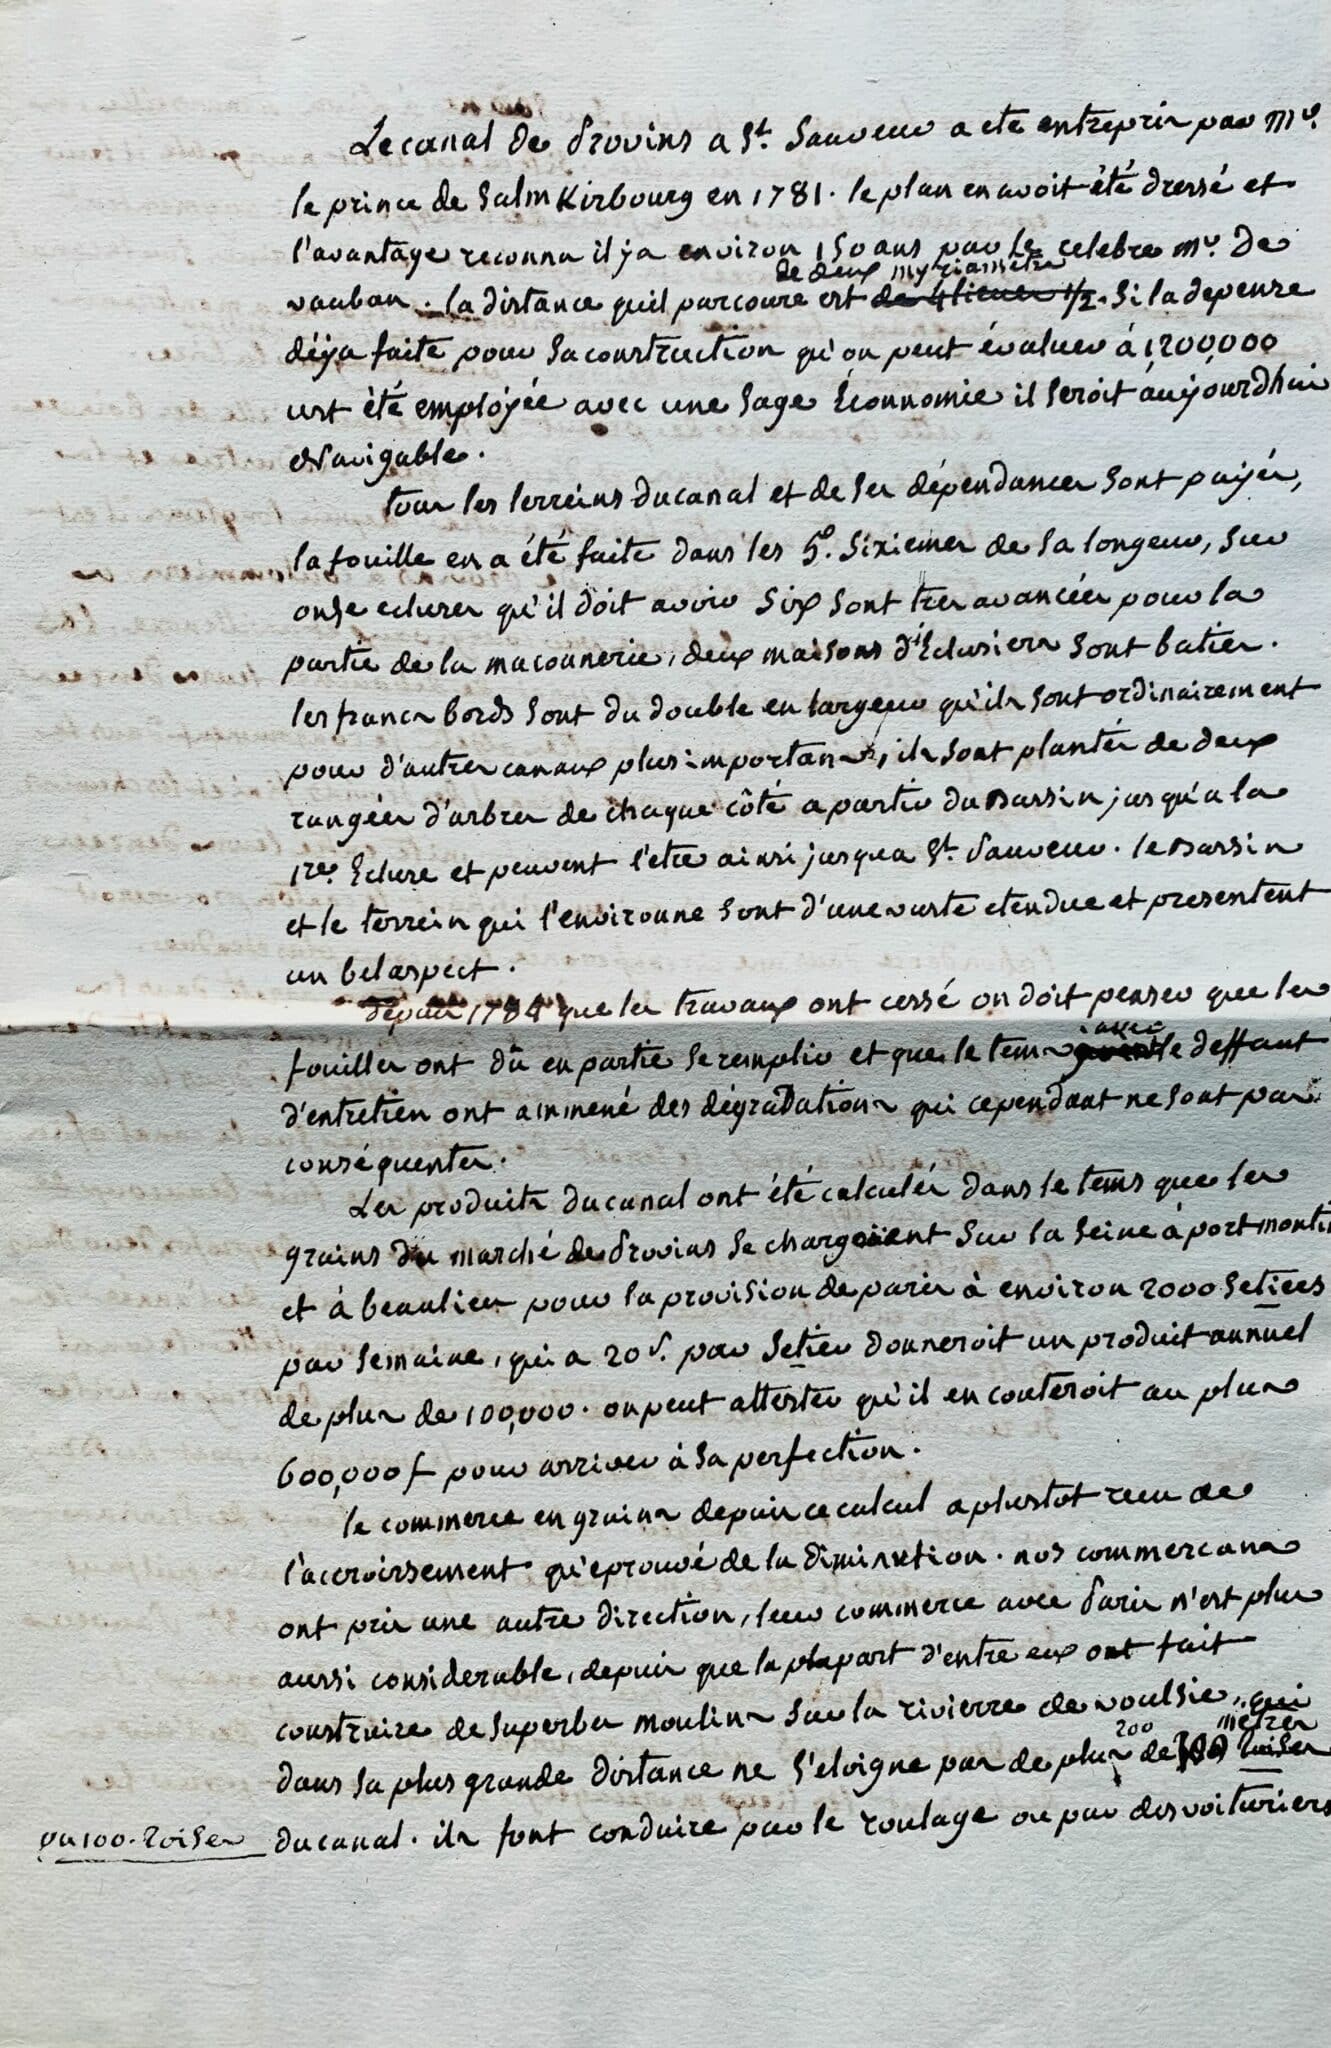 Le canal de Provins a St. Sauveur a eté entrepris par Mr.
le prince de Salm Kirbourg en 1781. le plan en avoit été dressé et
l'avantage reconnu il y a environ 150 ans par le celebre Mr. de
de deux myriamètre
vauban. la distance qu'il parcoure est de 4 lieues 1/2. Si la depense
déja faite pour sa construction qu'on peut évaluer à 1,200,000
eut été employée avec une sage Économie il seroit aujourdhui
Navigable.
tous les terreins du canal et de ses dépendances sont payés,
la fouille en a été faite dans les 5e. sixiemes de sa longeur, sur
onse ecluses qu'il doit avoir six sont tres avancées pour la
partie de la maconnerie, deux maisons d'Éclusiers sont baties.
les francs bords sont du double en largeur qu'ils sont ordinairement
pour d'autres canaux plus importans, ils sont plantés de deux
rangées d'arbres de chaque côté a partir du Bassin jusqu'a la
1re. Ecluse et peuvent l'etre ainsi jusqua St. Sauveur. le Bassin
et le terrein qui l'environne sont d'une vaste etendue et presentent
un bel aspect.
depuis 1784 que les travaux ont cessé on doit penser que les
avec
fouilles ont dû en partie se remplir et que le tems le deffaut
d'entretien ont ammené des dégradations qui cependant ne sont pas
conséquentes.
Les produits du canal ont été calculés dans le tems que les
grains du marché de Provins se chargoient sur la Seine à port montin
et à beaulieu pour la provision de paris à environ 2000 setiers
par semaine, qui a 20 s. par setier donneroit un produit annuel
de plus de 100,000. on peut attester qu'il en couteroit au plus
600,000 f pour arriver à sa perfection.
le commerce en grains depuis ce calcul a plustot recu de
l'accroissement qu'eprouvé de la diminution. nos commercans
ont pris une autre direction, leur commerce avec Paris n'est plus
aussi considerable, depuis que la plupart d'entre eux ont fait
construire de superbes moulins sur la rivierre de voulsie, qui
200 metres
dans sa plus grande distance ne s'eloigne pas de plus de 100 toises
ou 100. toises
du canal. ils font conduire par le roulage ou par des voituriers